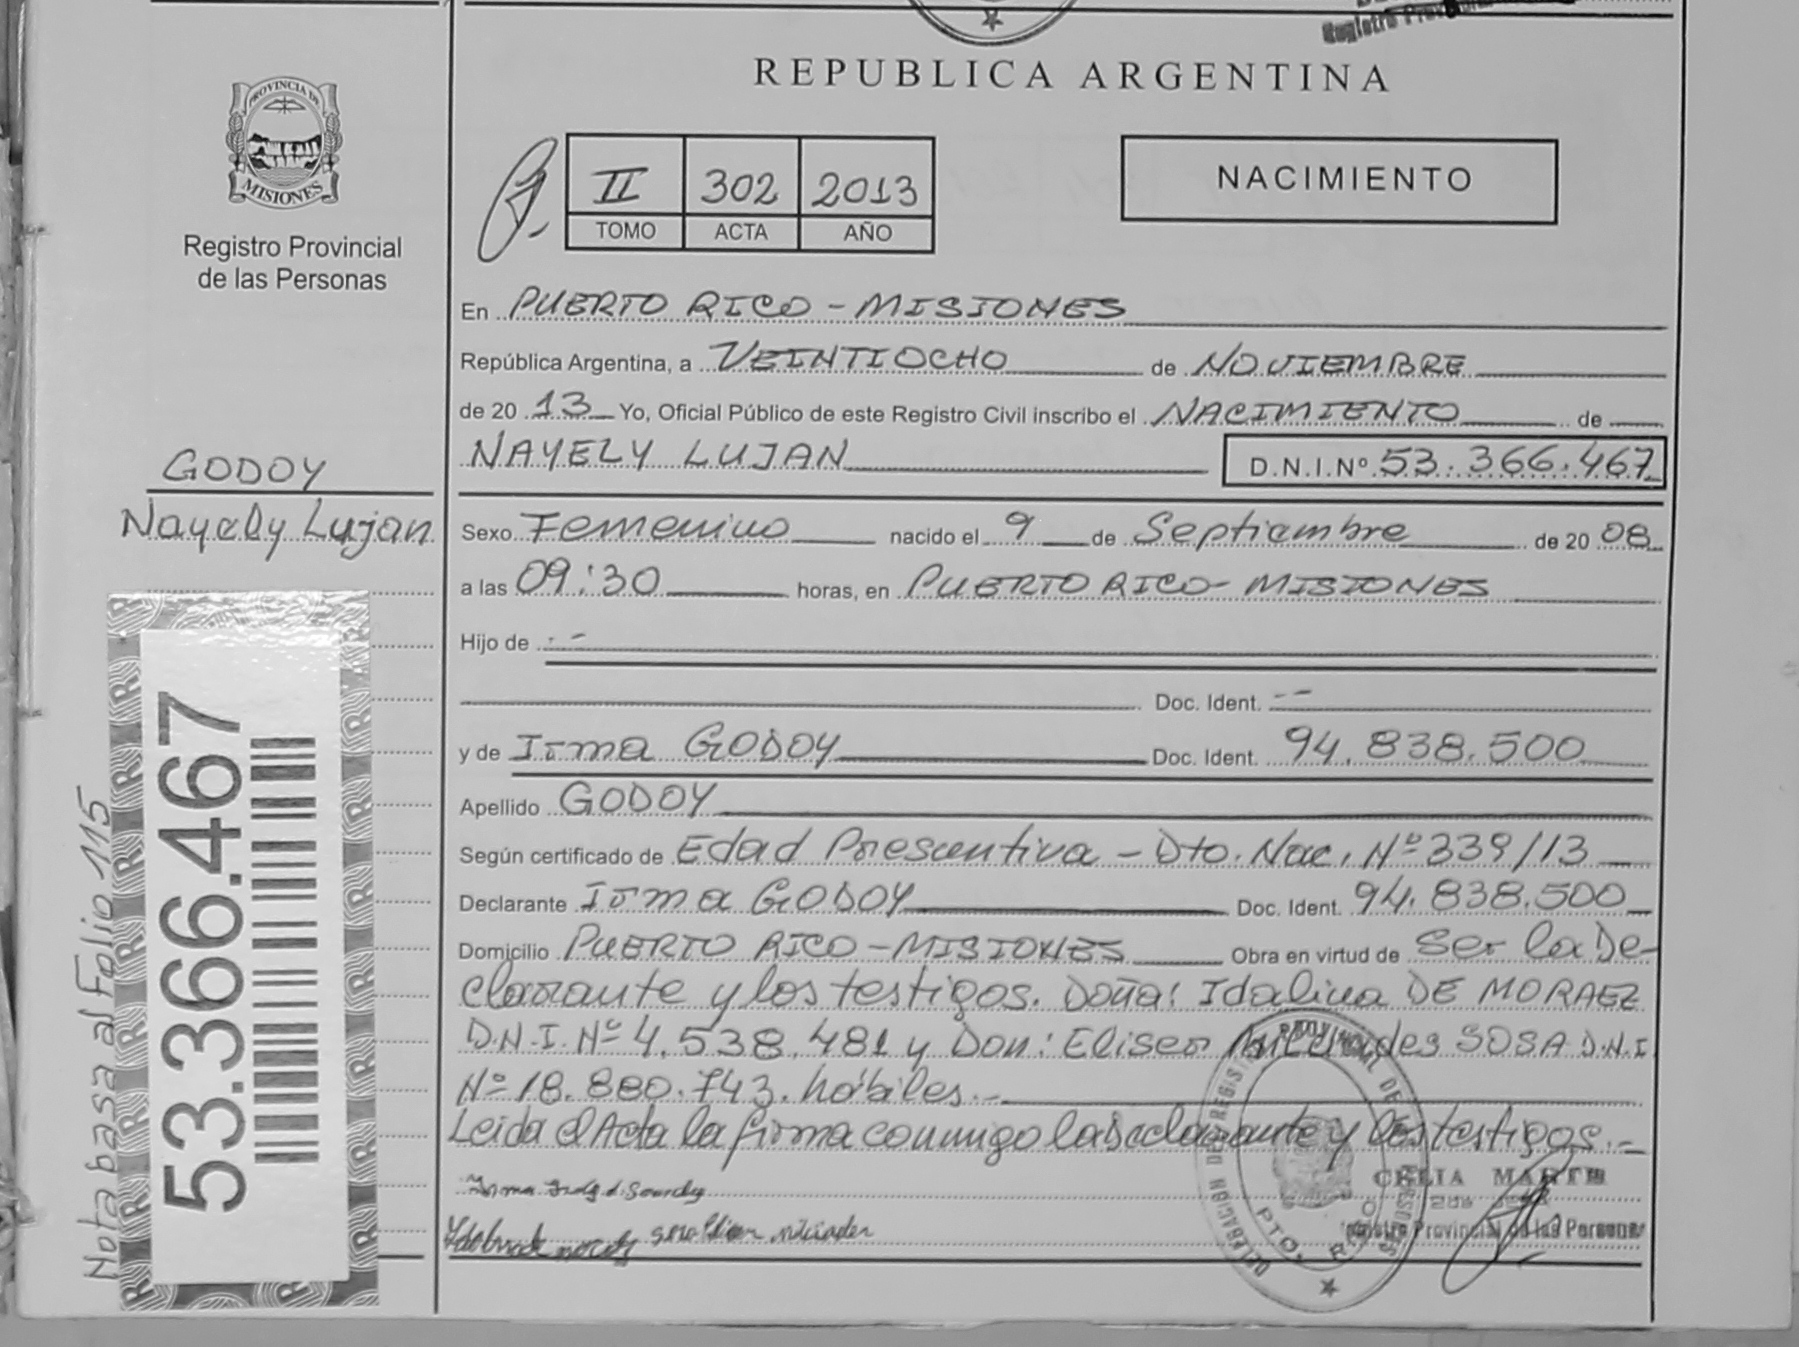 Registro Prov
REPUBLICA ARGENTINA
PROVINCIA DE
MISIONES
Registro Provincial
de las Personas
II 302 2013
TOMO ACTA AÑO
NACIMIENTO
En PUERTO RICO - MISIONES
República Argentina, a VEINTIOCHO de NOVIEMBRE
de 20 13 Yo, Oficial Público de este Registro Civil inscribo el NACIMIENTO de
NAYELY LUJAN D.N.I.Nº 53.366.467
GODOY
Nayely Lujan
Sexo Femenino nacido el 9 de Septiembre de 20 08
a las 09:30 horas, en PUERTO RICO - MISIONES
Hijo de - -
Doc. Ident. - -
y de Irma GODOY Doc. Ident. 94.838.500
Apellido GODOY
Según certificado de Edad Presuntiva - Dto. Nac. Nº 339/13
Declarante Irma GODOY Doc. Ident. 94.838.500
Domicilio PUERTO RICO - MISIONES Obra en virtud de Ser la De-
clarante y los testigos. Doña: Idalina DE MORAEZ
D.N.I. Nº 4.538.481 y Don: Eliseo SOSA D.N.I
Nº 18.880.743. hábiles.-
Leida el Acta la firma conmigo la declarante y los testigos.-
CELIA
Registro Provincial de las Personas
DELEGACION
PTO. RICO
53.366.467
Nota basa al Folio 115